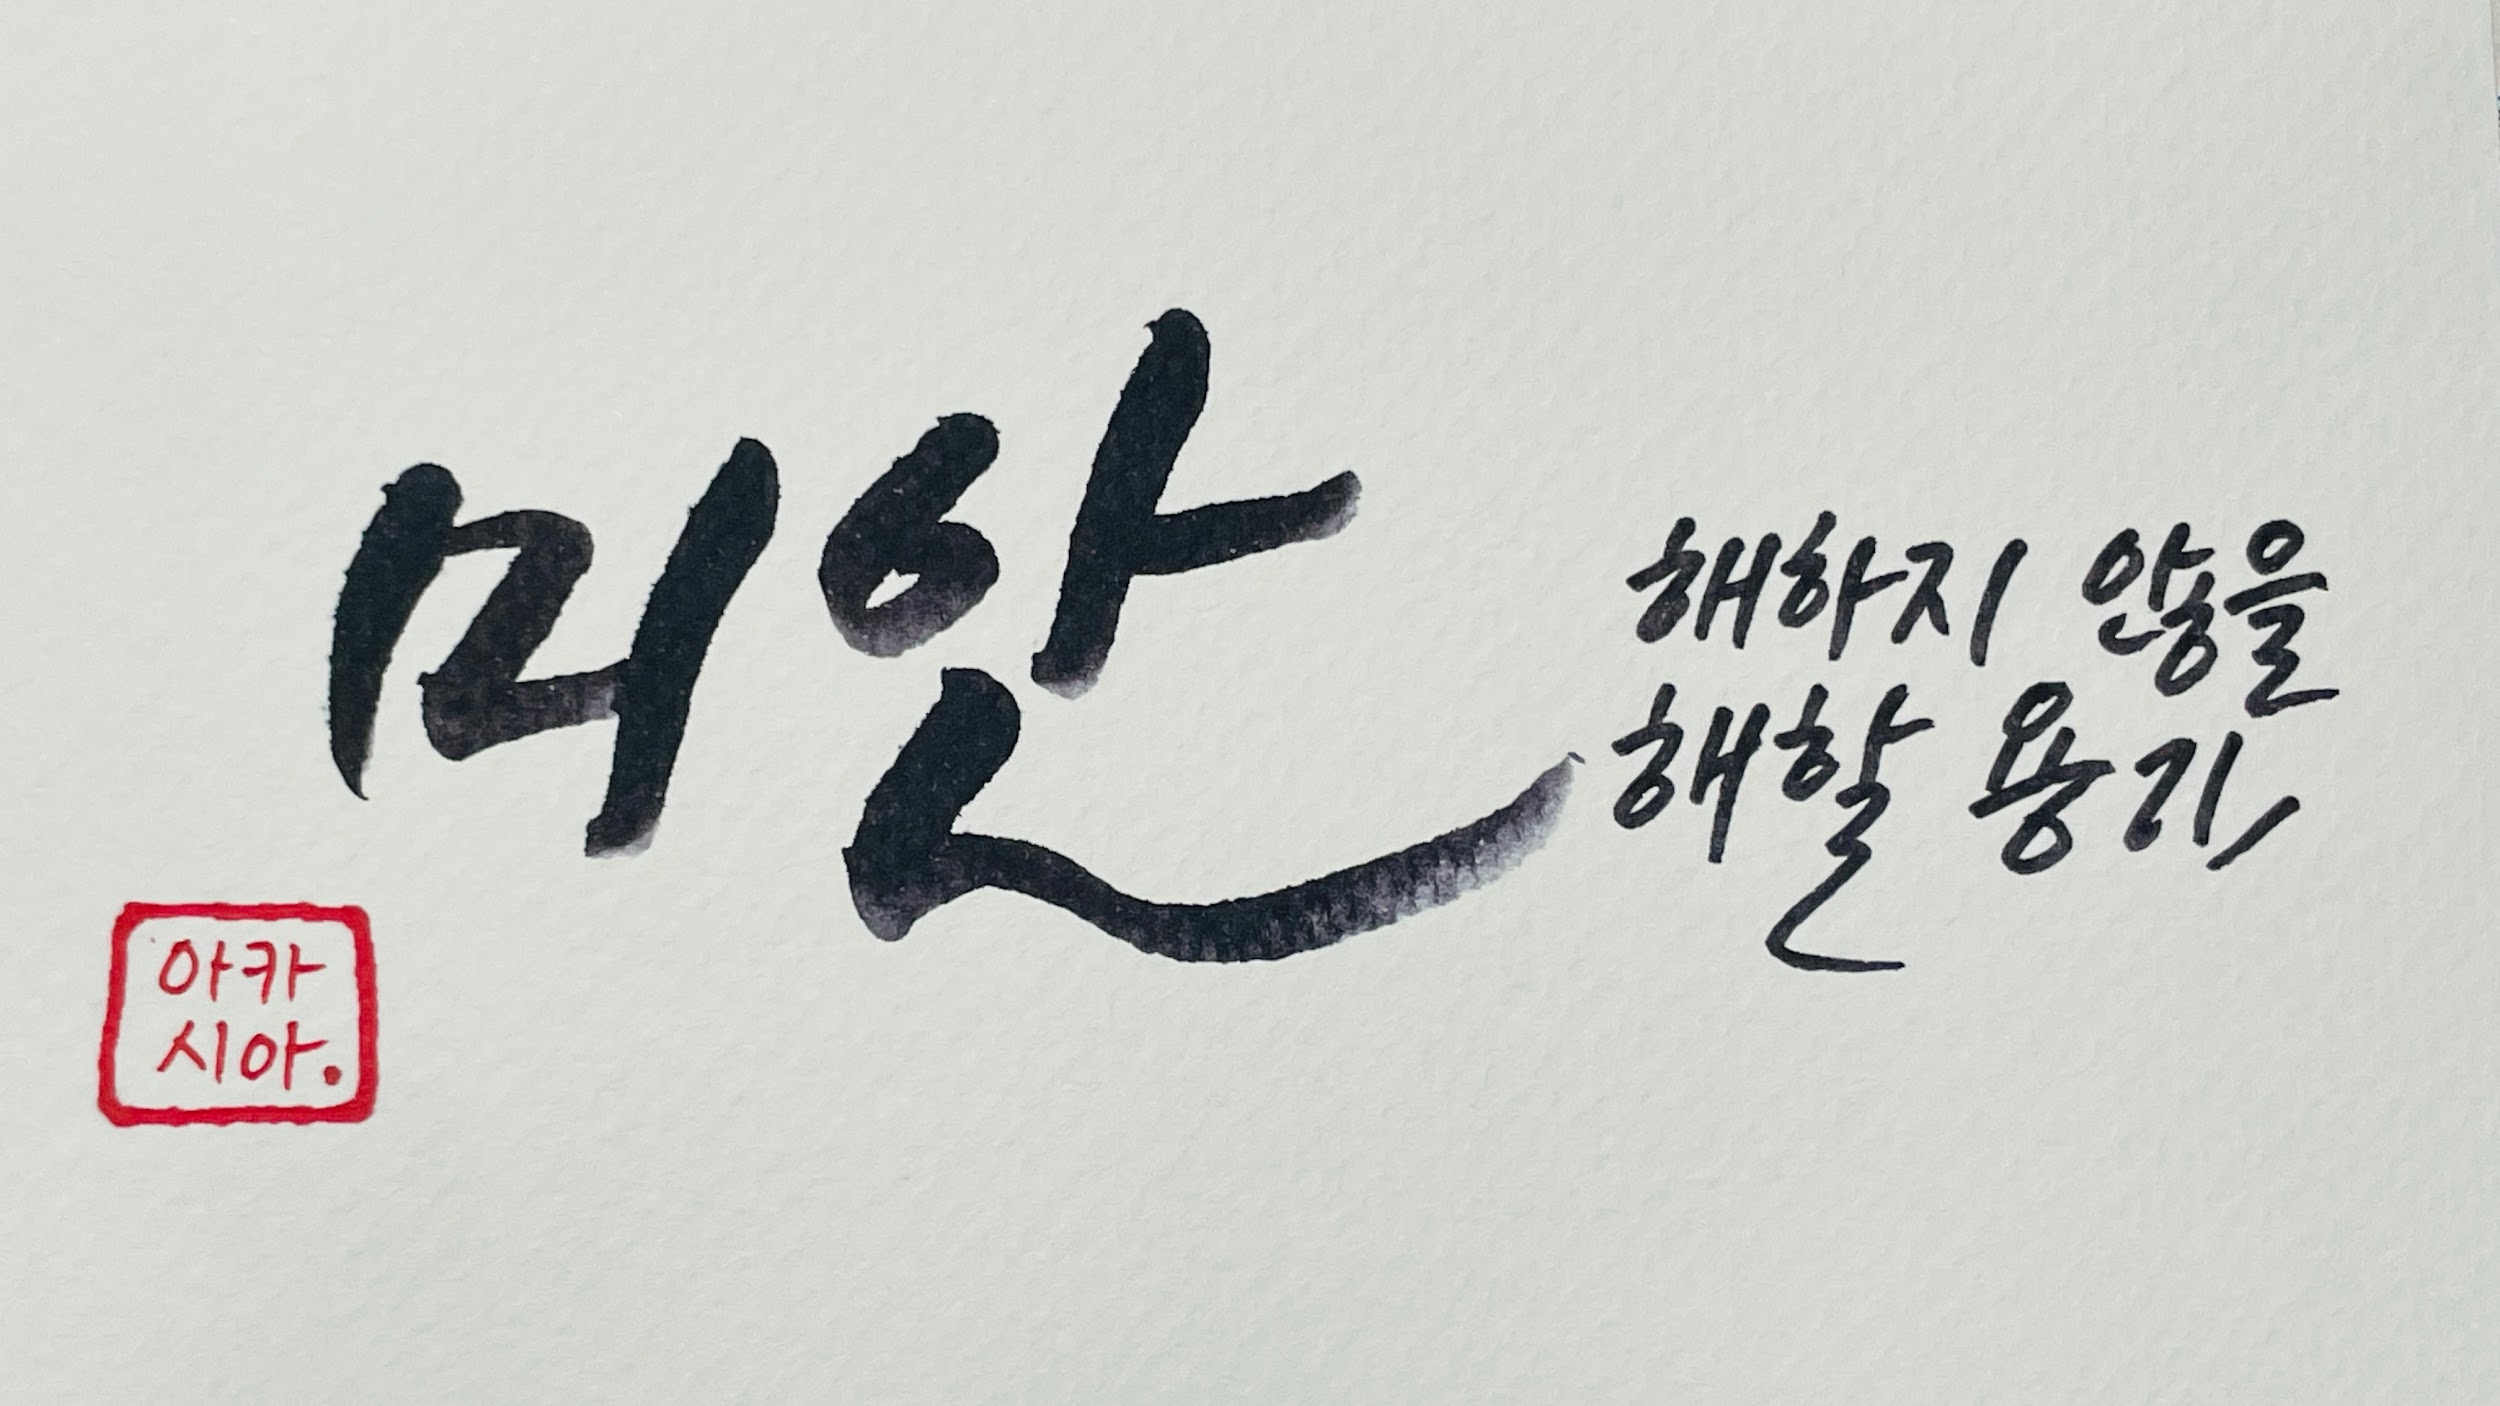 미안
해하지 않을
해할 용기,
아카
시아.